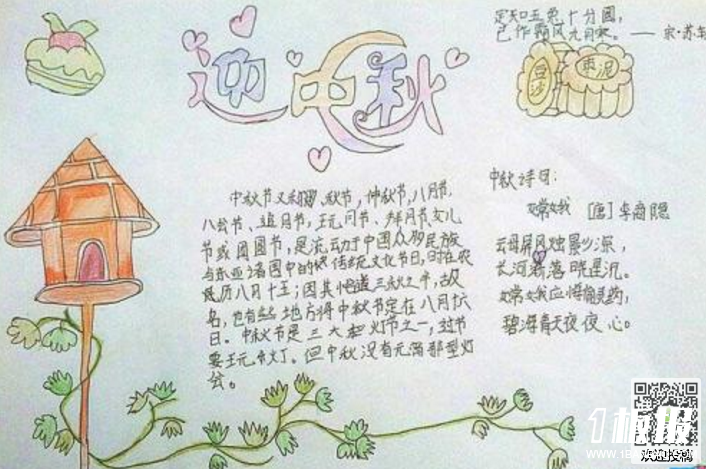 定知玉兔十分圆,
已作霜风九月寒。——宋·苏轼
迎中秋
豆沙
枣泥
中秋节又称月夕、秋节、仲秋节、八月节、
八会节、追月节、玩月节、拜月节、女儿
节或团圆节,是流动于中国众多民族
与东亚诸国中的传统文化节日,时在农
历八月十五;因其恰值三秋之半,故
名,也有些地方将中秋节定在八月十六
日。中秋节是三大灯节之一,过节
要玩灯。但中秋没有元宵那型灯
会。
中秋诗曰:
嫦娥 [唐]李商隐
云母屏风烛影深,
长河渐落晓星沉。
嫦娥应悔偷灵药,
碧海青天夜夜心。
1板报